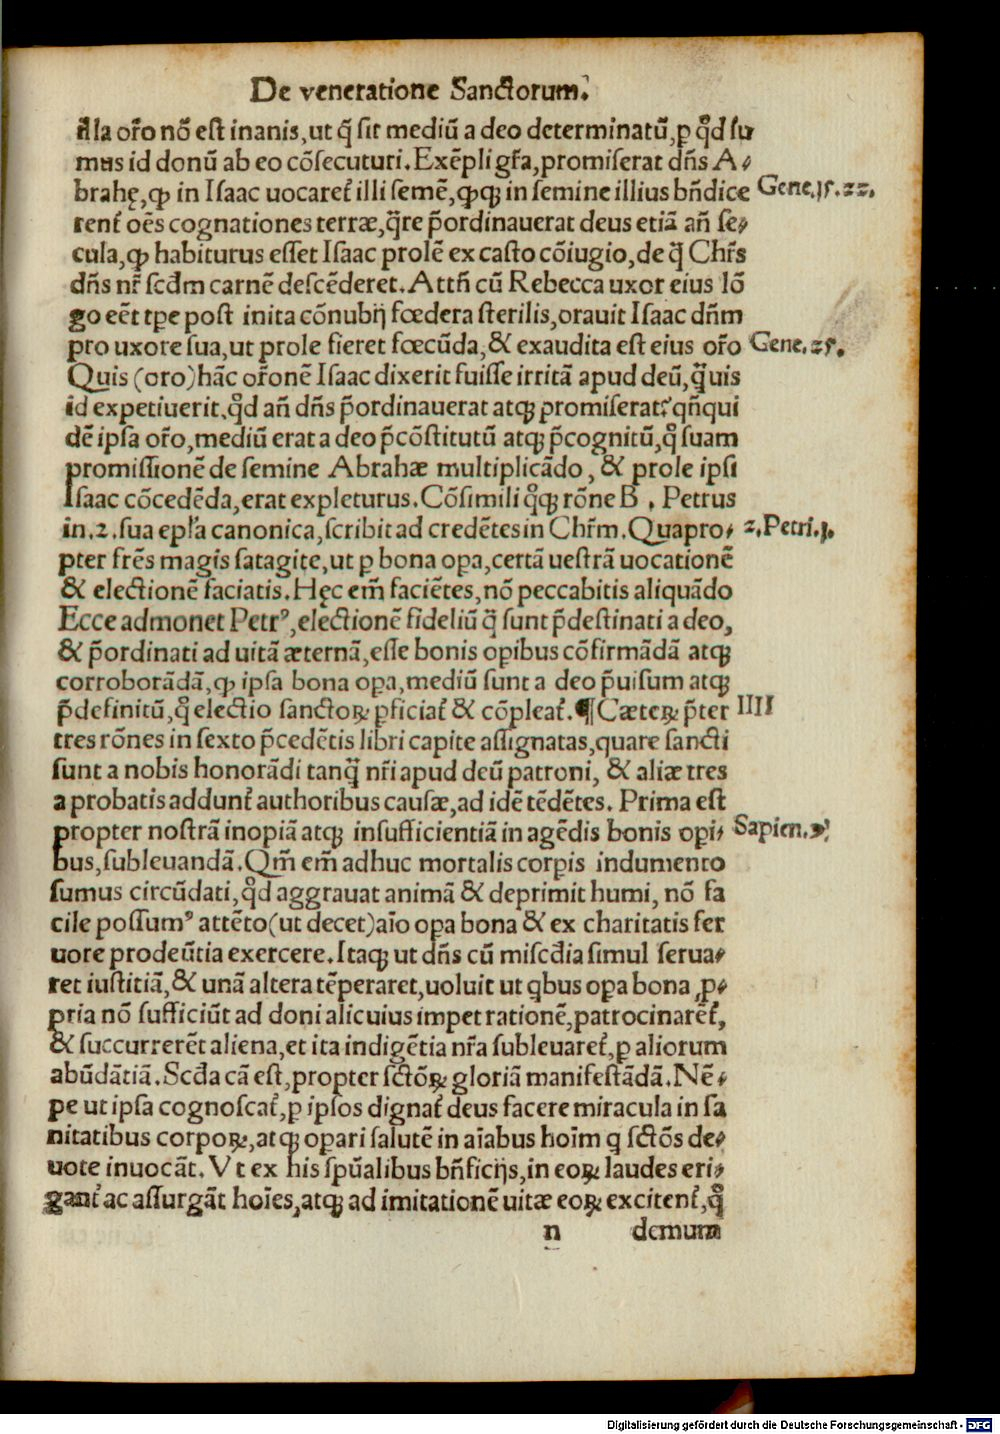 De veneratione Sanctorum.
illa or̃o nõ est inanis, ut q̃ sit mediũ a deo determinatũ, ꝑ qd̃ su
mus id donũ ab eo cõsecuturi. Exẽpli gr̃a, promiserat dñs A-
brahę, ꝙ in Isaac uocaret᷑ illi semẽ, ꝙꝗ in semine illius bñdice
Gene. 15. 22.
rent᷑ oẽs cognationes terræ, q̃re p̃ordinauerat deus etiã añ se-
cula, ꝙ habiturus esset Isaac prolẽ ex casto cõiugio, de q̃ Chr̃s
dñs nr̃ scd̃m carnẽ descẽderet. Attñ cũ Rebecca uxor eius lõ
go eẽt tp̃e post inita cõnubij fœdera sterilis, orauit Isaac dñm
pro uxore sua, ut prole fieret fœcũda, & exaudita est eius or̃o
Gene. 25.
Quis (oro) hãc or̃onẽ Isaac dixerit fuisse irritã apud deũ, q̃uis
id expetiuerit, qd̃ añ dñs p̃ordinauerat atqꝫ promiserat? qñqui
dẽ ipsa or̃o, mediũ erat a deo p̃cõstitutũ atqꝫ p̃cognitũ, q̃ suam
promissionẽ de semine Abrahæ multiplicãdo, & prole ipsi
Isaac cõcedẽda, erat expleturus. Cõsimili q̃qꝫ rõne B. Petrus
in. 2. sua epl̃a canonica, scribit ad credẽtes in Chr̃m. Quapro-
2. Petri. j.
pter fr̃es magis satagite, ut ꝑ bona opa, certã uestrã uocationẽ
& electionẽ faciatis. Hęc em̃ faciẽtes, nõ peccabitis aliquãdo
Ecce admonet Petrꝰ, electionẽ fideliũ q̃ sunt p̃destinati a deo,
& p̃ordinati ad uitã æternã, esse bonis opibus cõfirmãdã atqꝫ
corroborãdã, ꝙ ipsa bona opa, mediũ sunt a deo p̃uisum atqꝫ
p̃definitũ, q̃ electio sanctoꝝ ꝑficiat᷑ & cõpleat᷑. ¶ Cæteꝝ p̃ter
IIII
tres rõnes in sexto p̃cedẽtis libri capite assignatas, quare sancti
sunt a nobis honorãdi tanq̃ nr̃i apud deũ patroni, & aliæ tres
a probatis addunt᷑ authoribus causæ, ad idẽ tẽdẽtes. Prima est
propter nostrã inopiã atqꝫ insufficientiã in agẽdis bonis opi-
Sapien. 9.
bus, subleuandã. Qm̃ em̃ adhuc mortalis corpis indumento
sumus circũdati, qd̃ aggrauat animã & deprimit humi, nõ fa
cile possumꝰ attẽto (ut decet) aĩo opa bona & ex charitatis fer
uore prodeũtia exercere. Itaqꝫ ut dñs cũ miscd̃ia simul serua-
ret iustitiã, & unã altera tẽperaret, uoluit ut qbus opa bona ꝓ-
pria nõ sufficiũt ad doni alicuius impetrationẽ, patrocinarẽt᷑,
& succurrerẽt aliena, et ita indigẽtia nr̃a subleuaret᷑, ꝑ aliorum
abũdãtiã. Scd̃a cã est, propter sctõꝝ gloriã manifestãdã. Nẽ-
pe ut ipsa cognoscat᷑, ꝑ ipsos dignat᷑ deus facere miracula in sa
nitatibus corpoꝝ, atqꝫ opari salutẽ in aĩabus hoĩm q sctõs de-
uote inuocãt. Vt ex his spũalibus bñficijs, in eoꝝ laudes eri-
gant᷑ ac assurgãt hoĩes, atqꝫ ad imitationẽ uitæ eoꝝ excitent᷑, q̃
n demum
Digitalisierung gefördert durch die Deutsche Forschungsgemeinschaft - DFG